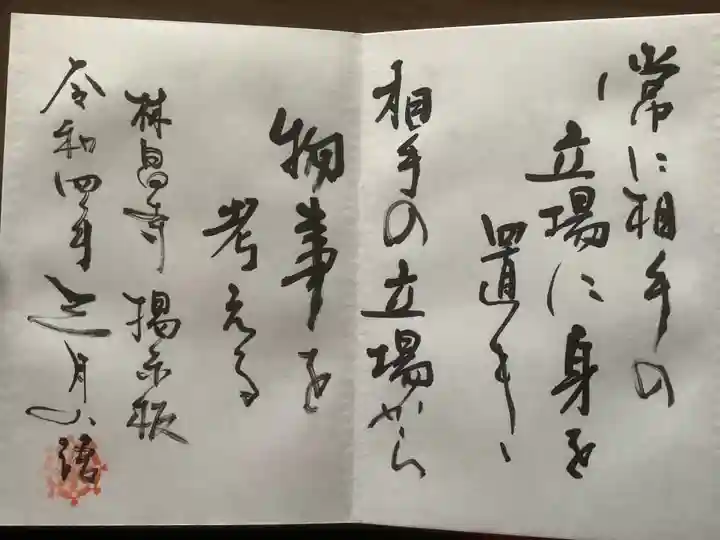 常に相手の
立場に身を
置き、
相手の立場から
物事を
考える
林昌寺 掲示板
令和四年 正月